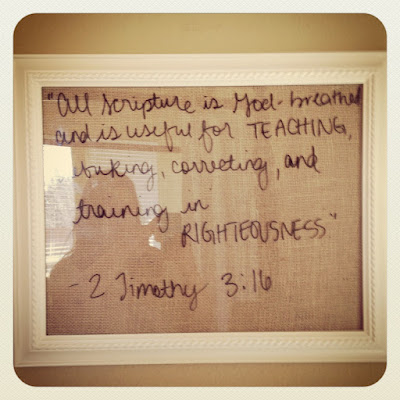 "All Scripture is God-breathed
and is useful for TEACHING,
rebuking, correcting, and
training in
RIGHTEOUSNESS"
- 2 Timothy 3:16